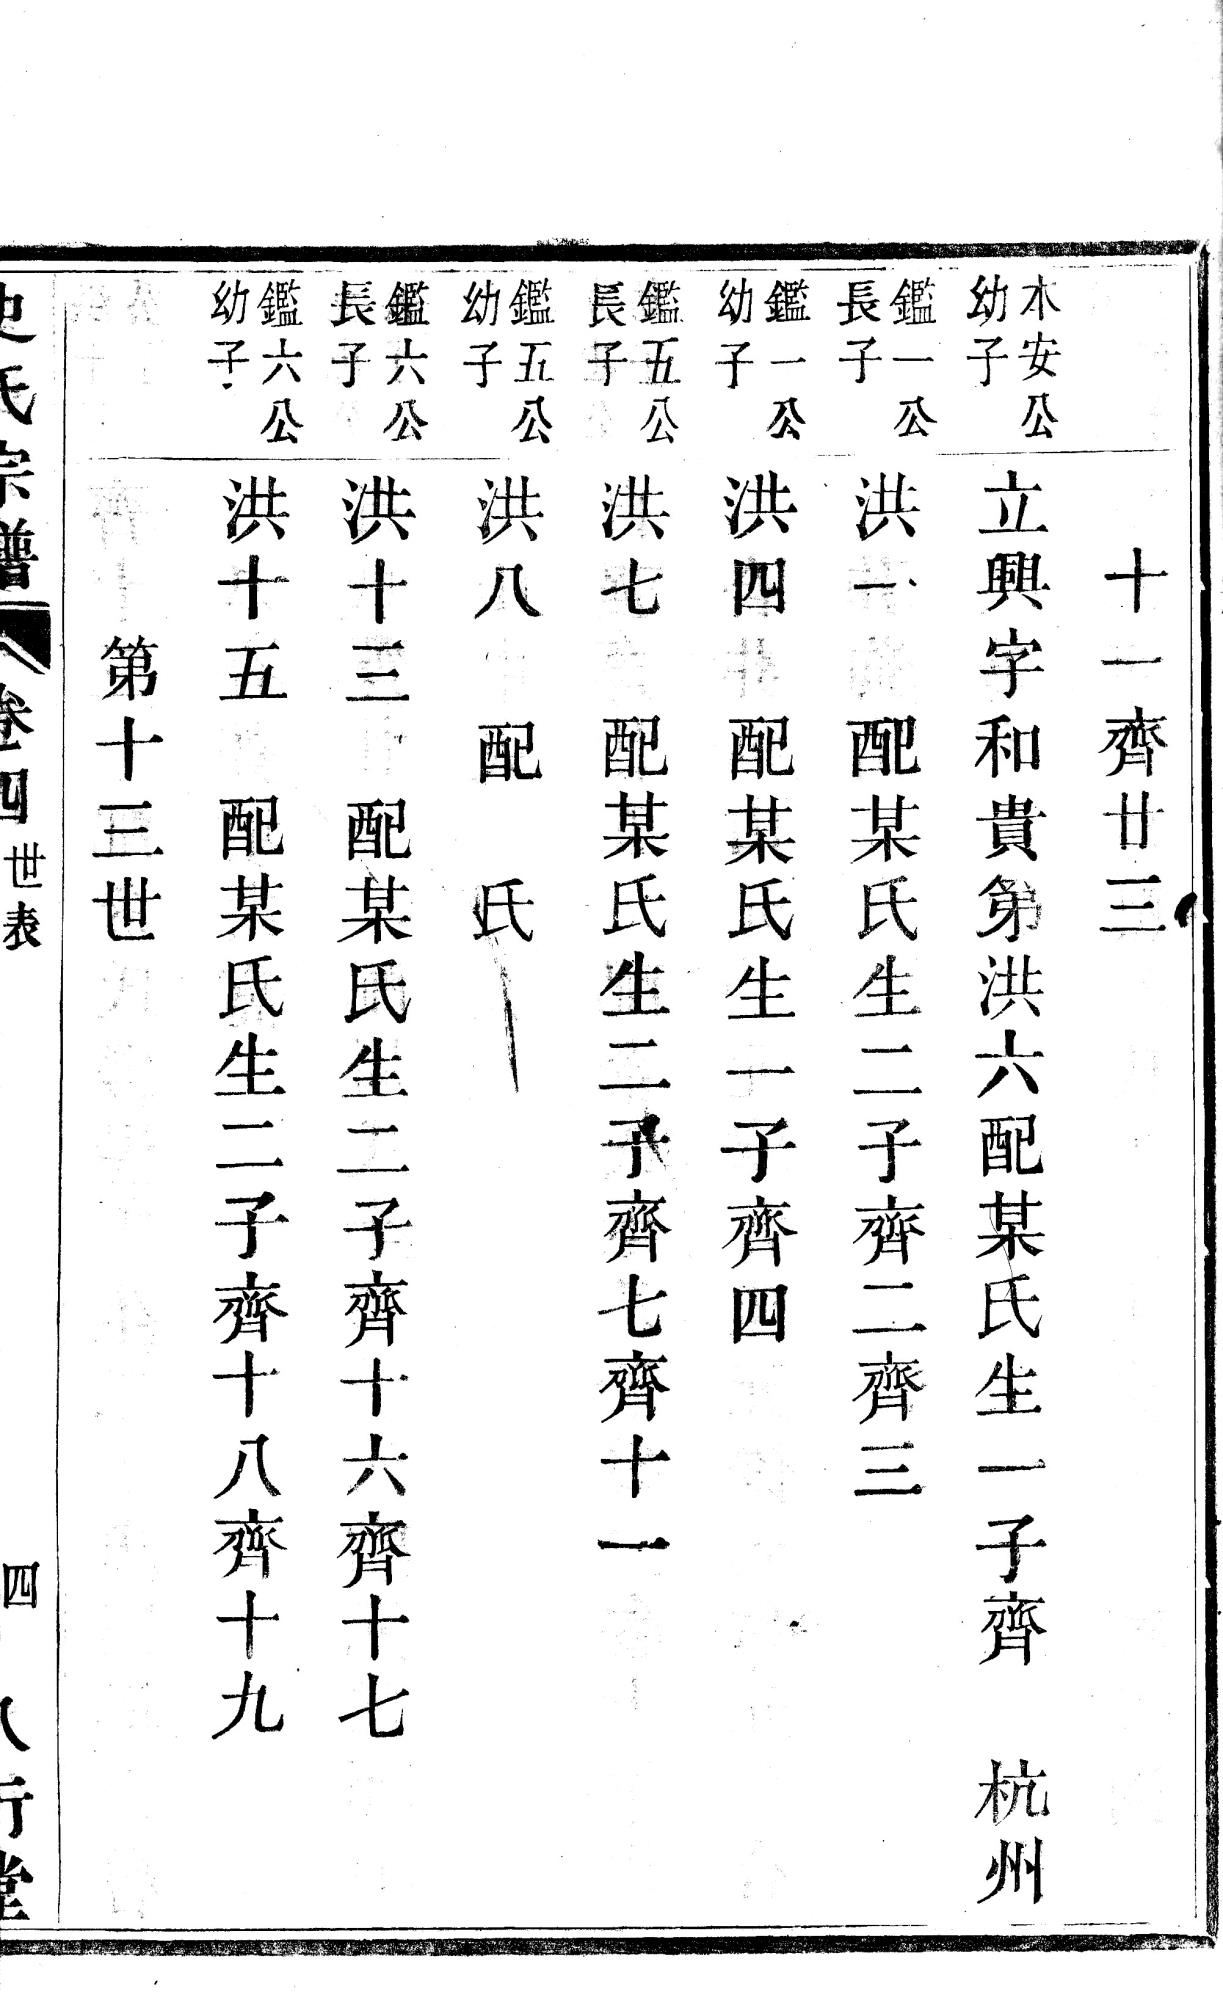 十一齊廿三
木安公
幼子
立興字和貴第洪六配某氏生一子齊　杭州
鑑一公
長子
洪一　配某氏生二子齊二齊三
鑑一公
幼子
洪四　配某氏生一子齊四
鑑五公
長子
洪七　配某氏生二子齊七齊十一
鑑五公
幼子
洪八　配　氏
鑑六公
長子
洪十三　配某氏生二子齊十六齊十七
鑑六公
幼子
洪十五　配某氏生二子齊十八齊十九
第十三世
史氏宗譜　卷四　世表　四　八行堂